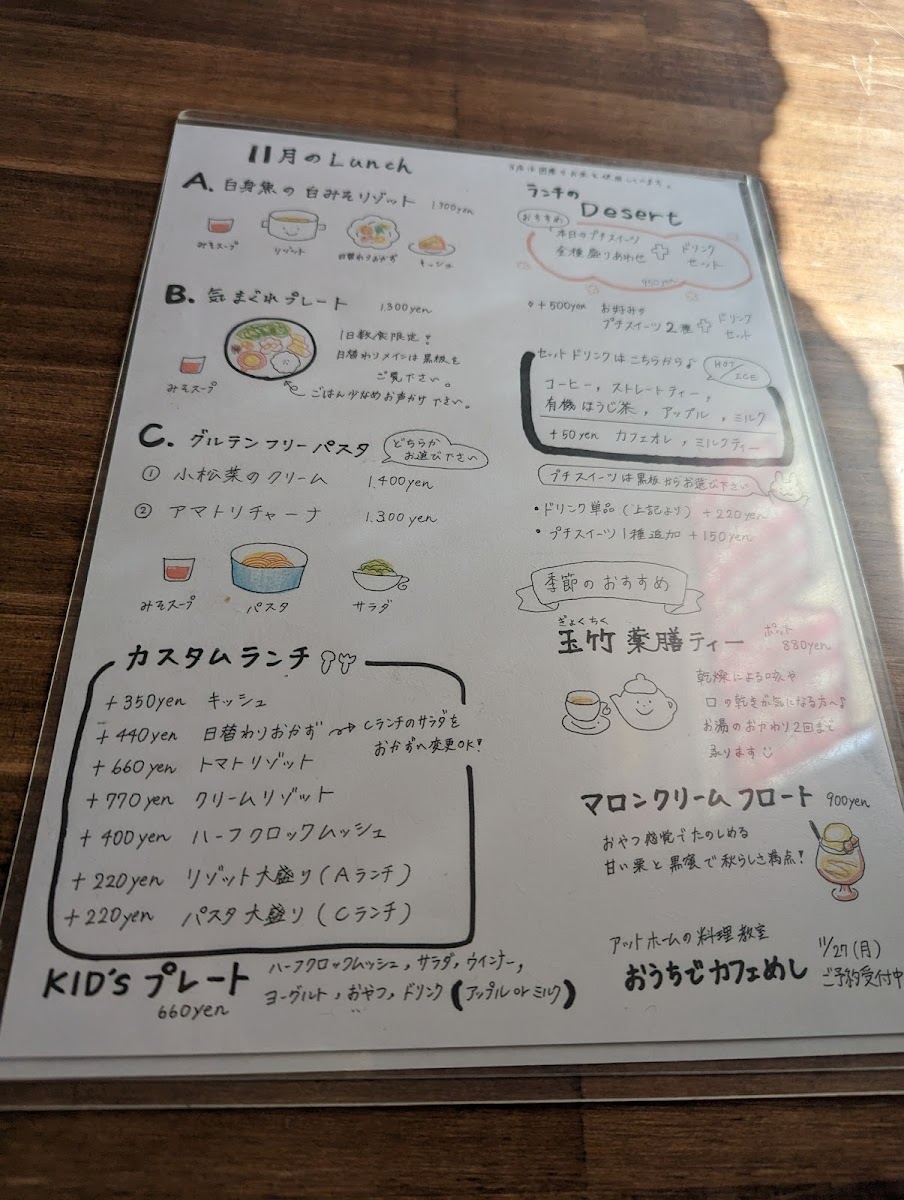 11月のLunch
A. 白身魚の白みそリゾット 1,300yen
みそスープ
リゾット
日替わりおかず
キッシュ
B. 気まぐれプレート 1,300yen
1日数食限定!
日替わりメインは黒板を
ご覧下さい。
みそスープ
ごはん少なめお声かけ下さい。
C. グルテンフリーパスタ
どちらか
お選び下さい
① 小松菜のクリーム 1,400yen
② アマトリチャーナ 1,300yen
みそスープ
パスタ
サラダ
カスタムランチ
+350yen キッシュ
+440yen 日替わりおかず → Cランチのサラダを
おかずへ変更OK!
+660yen トマトリゾット
+770yen クリームリゾット
+400yen ハーフクロックムッシュ
+220yen リゾット大盛り(Aランチ)
+220yen パスタ大盛り(Cランチ)
KID'sプレート
660yen
ハーフクロックムッシュ, サラダ, ウインナー,
ヨーグルト, おやつ, ドリンク(アップル or ミルク)
お米は国産のお米を使用しています。
ランチの
Desert
おすすめ
本日のプチスイーツ
全種盛りあわせ + ドリンク
セット
+500yen お好みの
プチスイーツ2種 + ドリンク
セット
セットドリンクはこちらから♪
HOT/ICE
コーヒー, ストレートティー,
有機ほうじ茶, アップル, ミルク
+50yen カフェオレ, ミルクティー
プチスイーツは黒板からお選び下さい
・ドリンク単品(上記より) +220yen
・プチスイーツ1種追加 +150yen
季節のおすすめ
ぎょくちく
玉竹薬膳ティー ポット
880yen
乾燥による咳や
口の乾きが気になる方へ♪
お湯のおかわり2回まで
承ります
マロンクリームフロート 900yen
おやつ感覚でたのしめる
甘い栗と黒蜜で秋らしさ満点!
アットホームの料理教室
おうちでカフェめし
11/27(月)
ご予約受付中